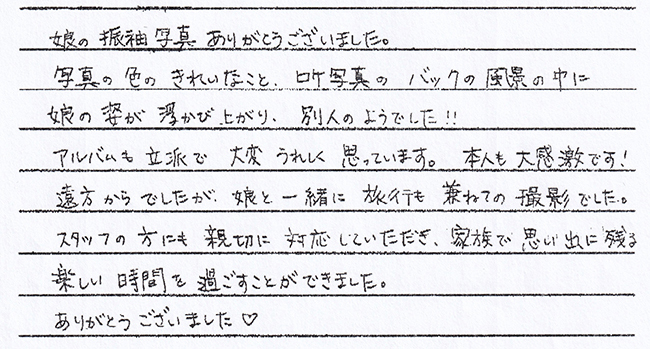 娘の振袖写真ありがとうございました。
写真の色のきれいなこと、ロケ写真のバックの風景の中に
娘の姿が浮かび上がり、別人のようでした!!
アルバムも立派で大変うれしく思っています。本人も大感激です!
遠方からでしたが、娘と一緒に旅行も兼ねての撮影でした。
スタッフの方にも親切に対応していただき、家族で思い出に残る
楽しい時間を過ごすことができました。
ありがとうございました♡